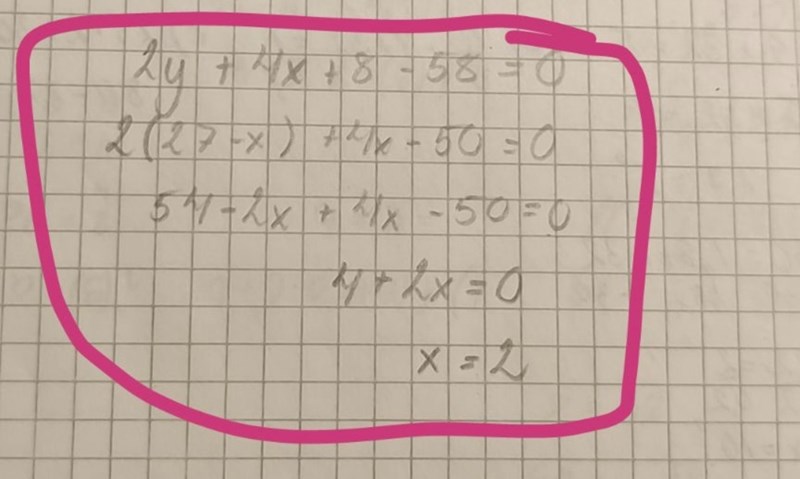 2y + 4x + 8 - 58 = 0
2(27 - x) + 4x - 50 = 0
54 - 2x + 4x - 50 = 0
4 + 2x = 0
x = 2